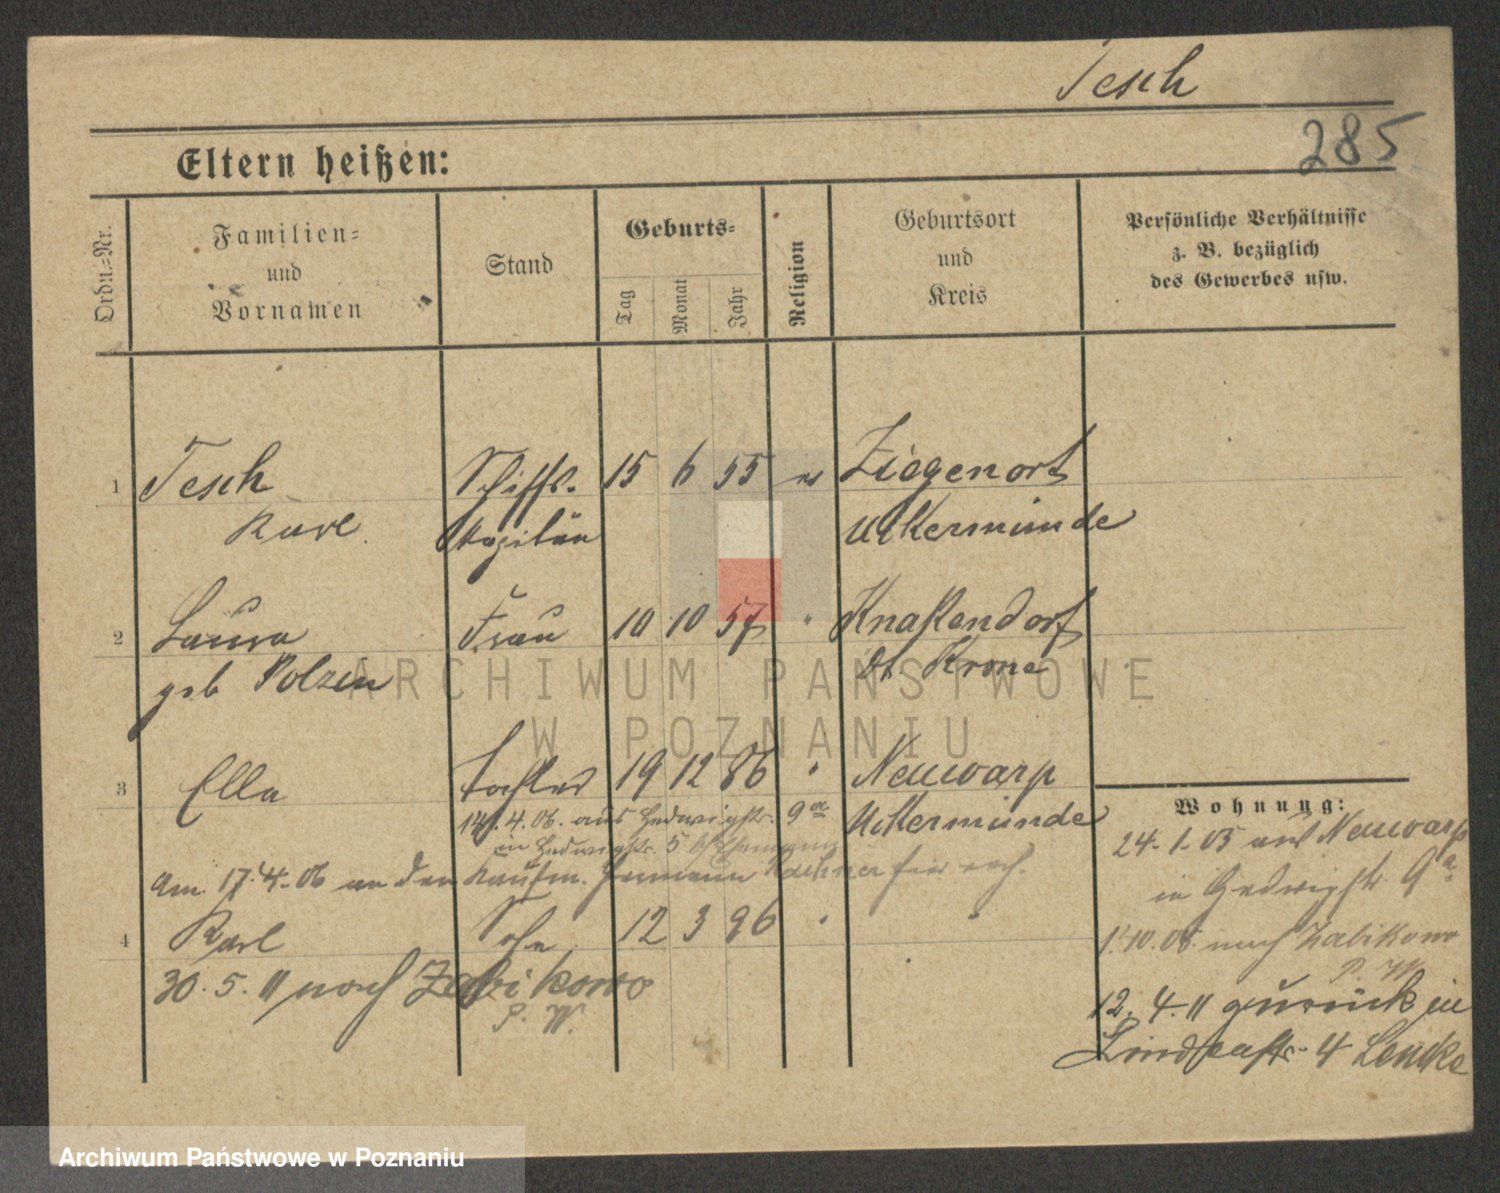 Tesch
285
Eltern heißen:
Ordn.=Nr.
Familien=
und
Vornamen
Stand
Geburts=
Tag
Monat
Jahr
Religion
Geburtsort
und
Kreis
Persönliche Verhältnisse
z. B. bezüglich
des Gewerbes usw.
1 Tesch Schiffs- 15 6 55 Ziegenort
Karl Kapitän Uckermünde
2 Laura Frau 10 10 57 " Dt. Krone
geb Polzin
3 Ella Tochter 19 12 86 " Neuwarp
Uckermünde
14.4.06. aus Hedwigstr. 9a
in Hedwigstr. 5
Am 17.4.06 an den Kaufm. Hermann
4 Karl Sohn 12 3 96 " "
30.5.11 nach Zabikowo
P. W.
Wohnung:
24.1.05 aus Neuwarp
in Hedwigstr. 9a
1.10.08 nach Zabikowo
P. W.
12.4.11 zurück in
4
ARCHIWUM PAŃSTWOWE
W POZNANIU
Archiwum Państwowe w Poznaniu